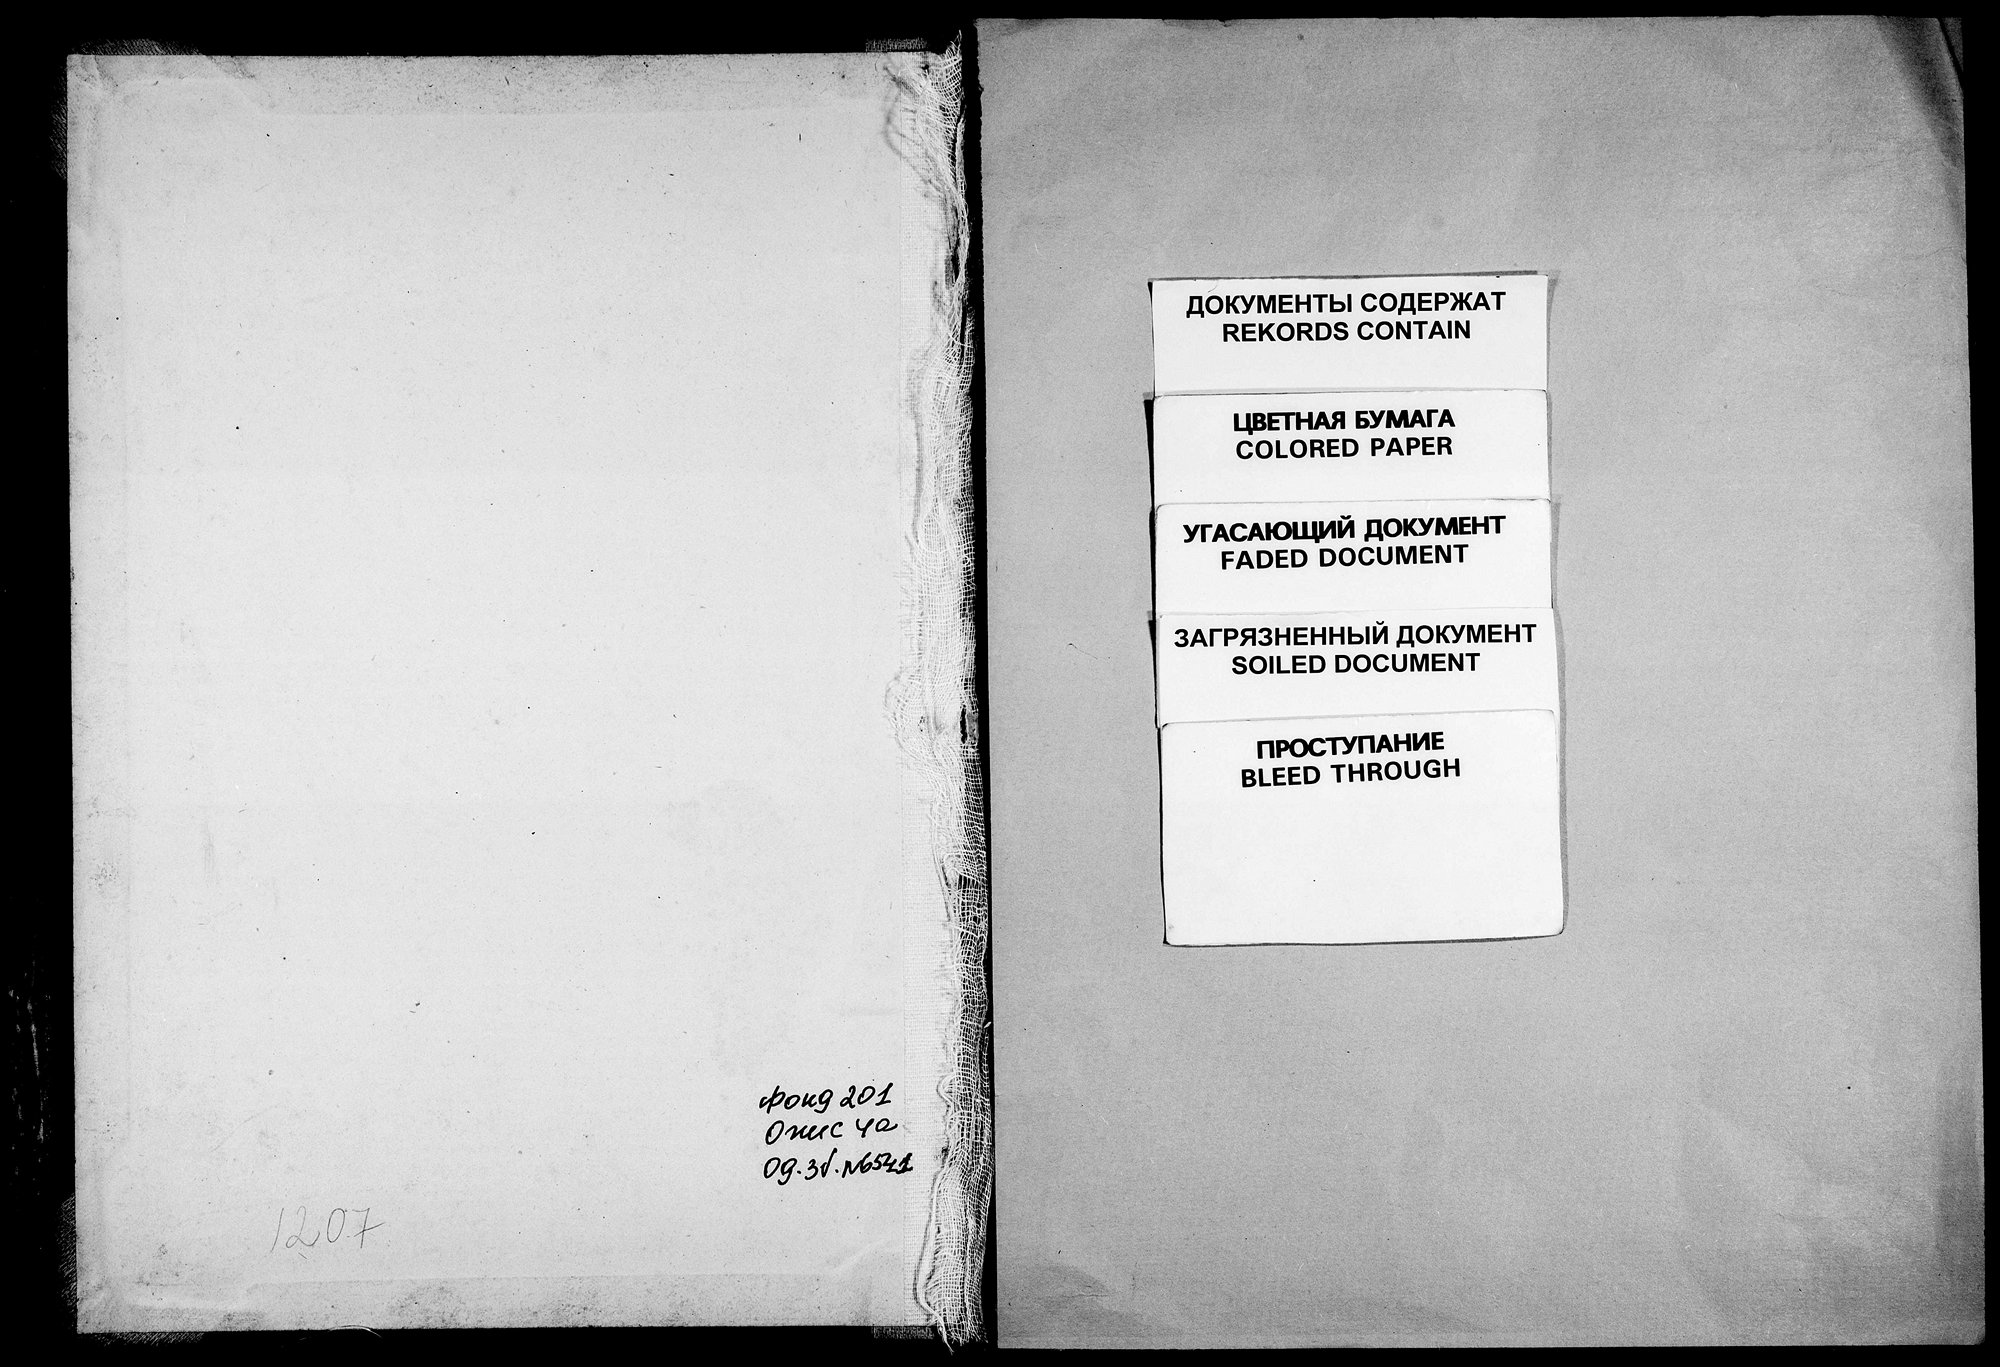 Фонд 201
Опис 4а
Од. зб. №6541
1207
ДОКУМЕНТЫ СОДЕРЖАТ
REKORDS CONTAIN
ЦВЕТНАЯ БУМАГА
COLORED PAPER
УГАСАЮЩИЙ ДОКУМЕНТ
FADED DOCUMENT
ЗАГРЯЗНЕННЫЙ ДОКУМЕНТ
SOILED DOCUMENT
ПРОСТУПАНИЕ
BLEED THROUGH